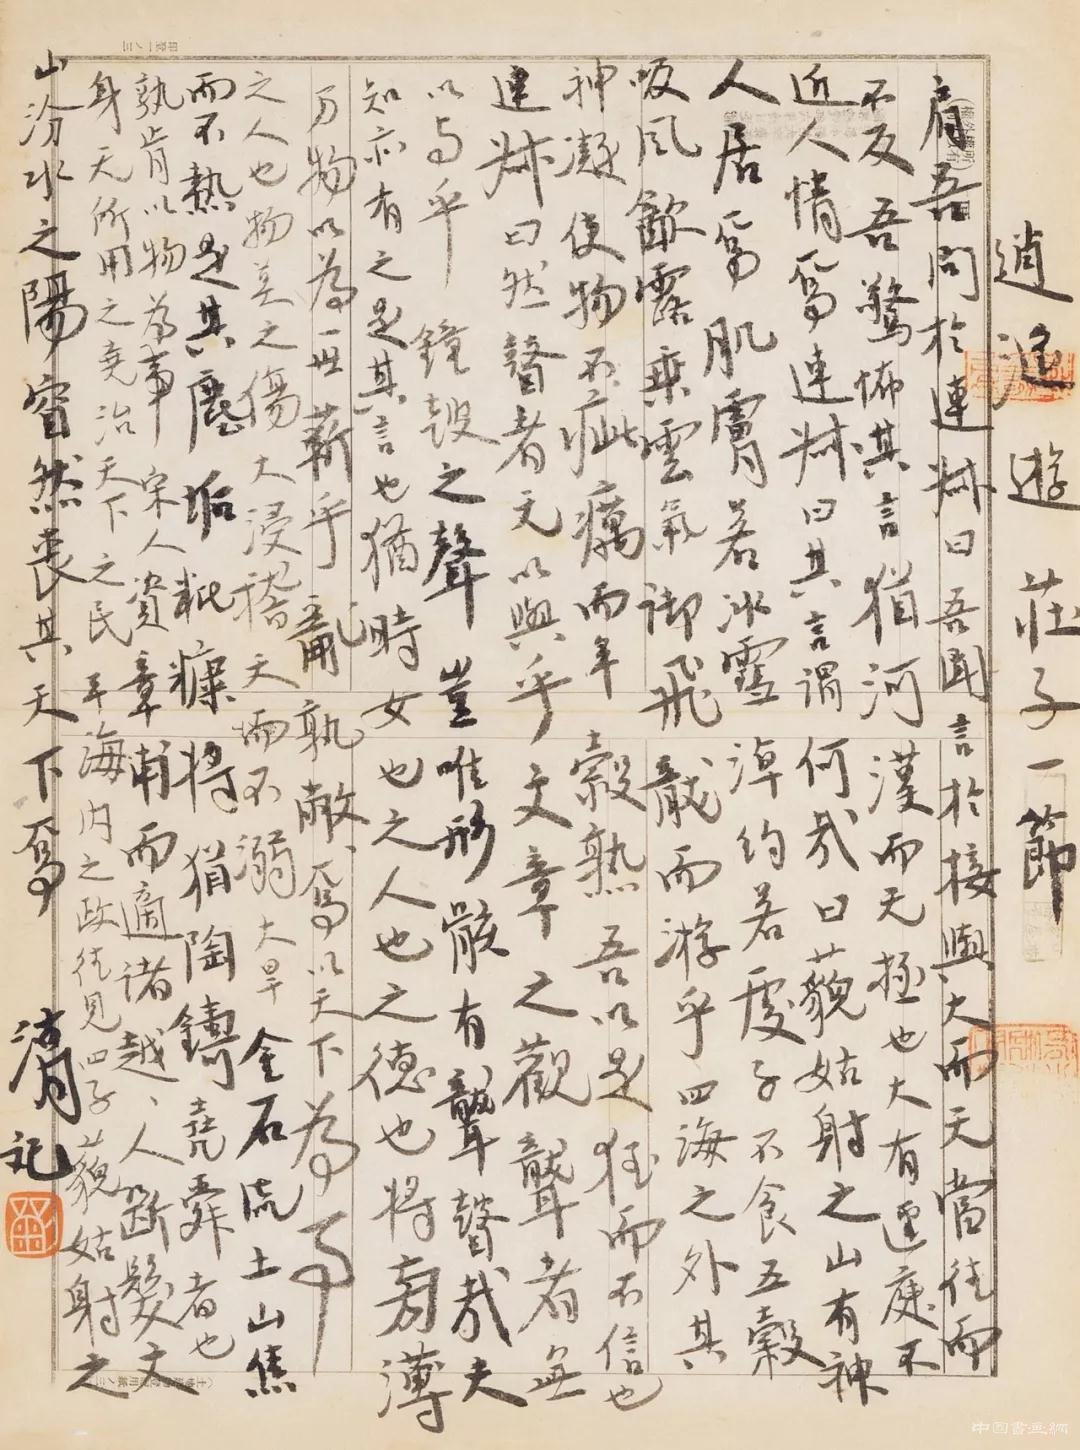 逍遙遊莊子一節
肩吾問於連叔曰吾聞言於接輿大而无當往而
不反吾驚怖其言猶河漢而无極也大有逕庭不
近人情焉連叔曰其言謂何哉曰藐姑射之山有神
人居焉肌膚若冰雪淖約若處子不食五穀
吸風飲露乘雲氣御飛龍而游乎四海之外其
神凝使物不疵癘而年穀熟吾以是狂而不信也
連叔曰然瞽者无以與乎文章之觀聾者無
以与乎鐘鼓之聲豈唯形骸有聾瞽哉夫
知亦有之是其言也猶時女也之人也之德也將旁薄
万物以為一世蘄乎亂孰敝焉以天下為事
之人也物莫之傷大浸稽天而不溺大旱金石流土山焦
而不熱是其塵垢粃糠將猶陶鑄堯舜者也
孰肯以物為事宋人資章甫而適諸越、人斷髮文
身无所用之堯治天下之民平海内之政往見四子藐姑射之
山汾水之陽窅然喪其天下焉
記
中国書画網